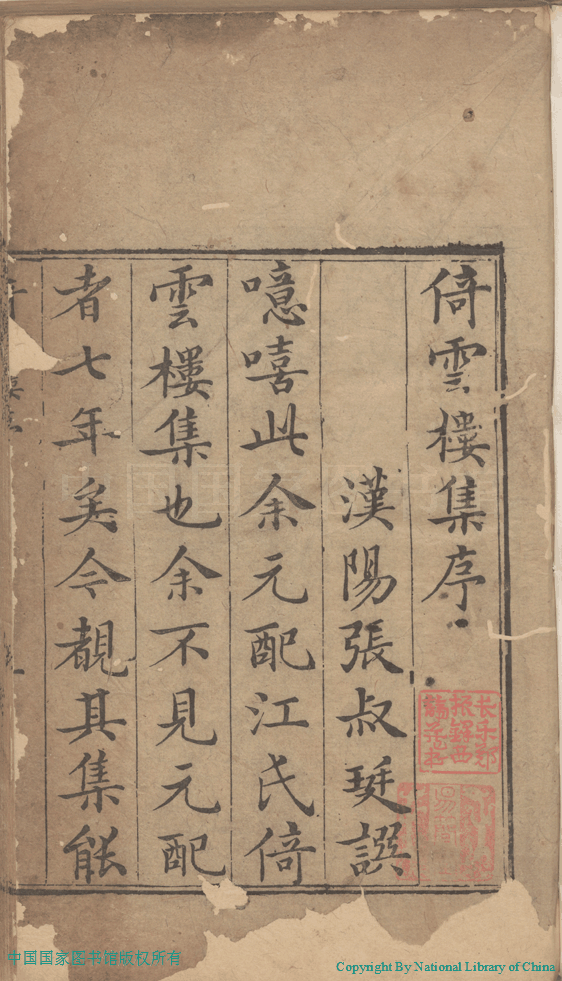 倚雲樓集序
漢陽張叔珽譔
噫嘻此余元配江氏倚
雲樓集也余不見元配
者七年矣今覩其集能
長樂鄭
振鐸西
諦藏書
中国国家图书馆版权所有
Copyright By National Library of China